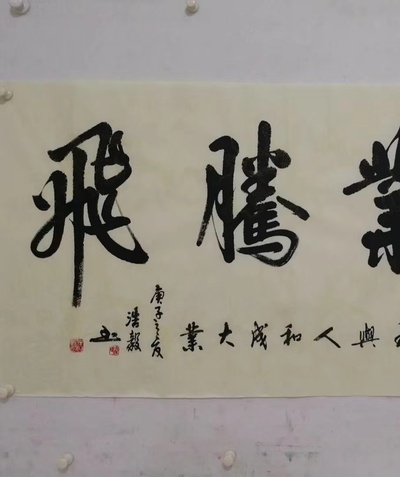 業騰飛
興人和成大業
庚子之夏
浩毅
书